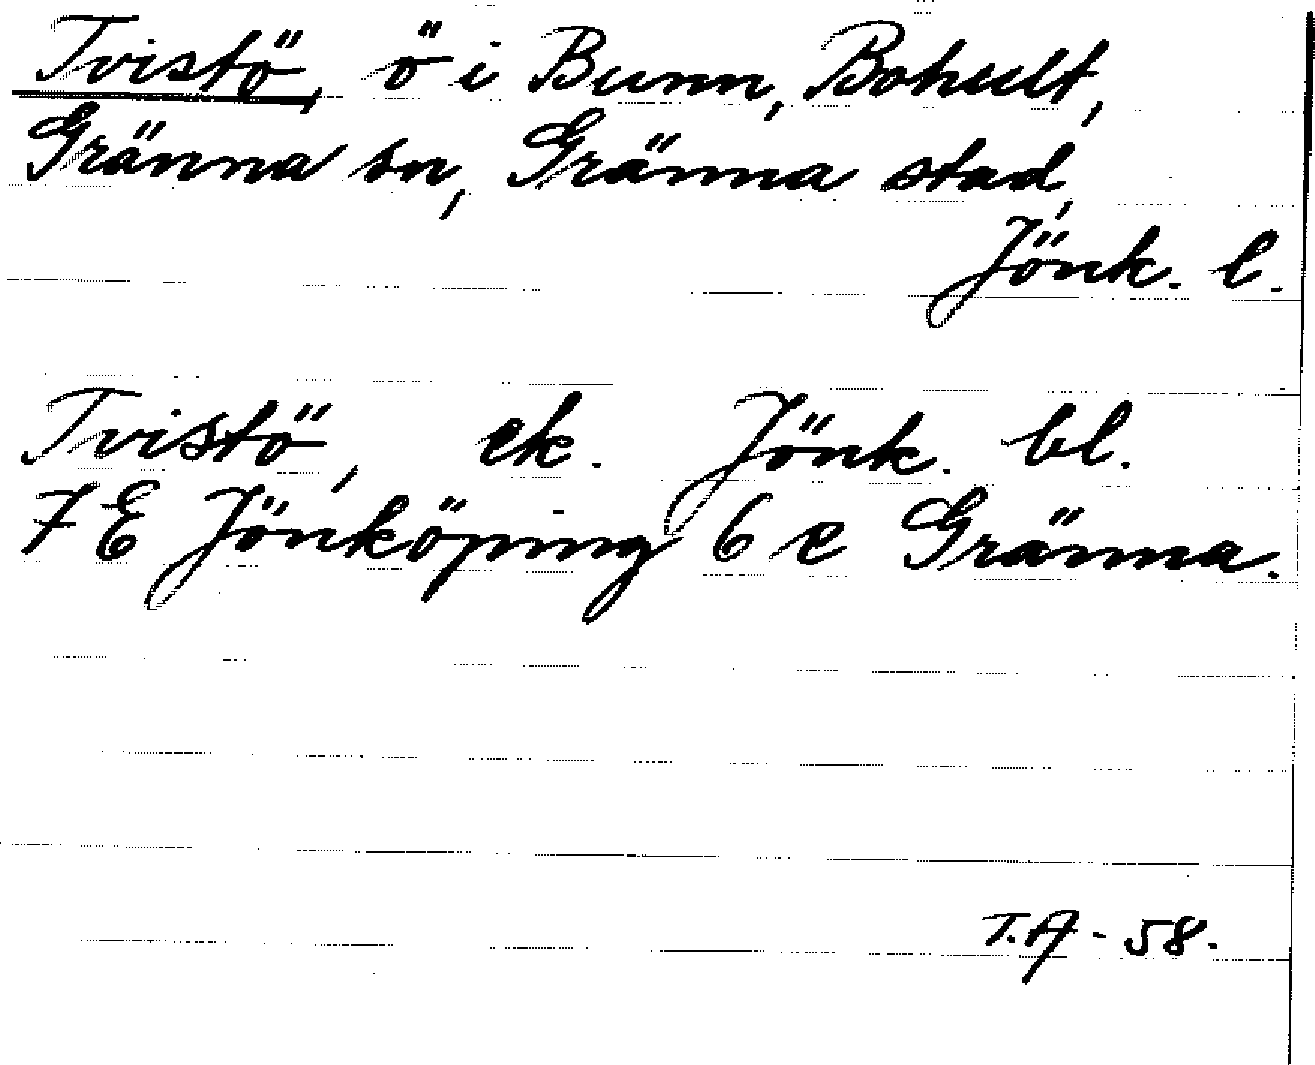 Tvistö, ö i Bunn, Bohult,
Gränna sn, Gränna stad,
Jönk. l.
Tvistö, ek. Jönk. bl.
7 E Jönköping 6 e Gränna.
T.A - 58.